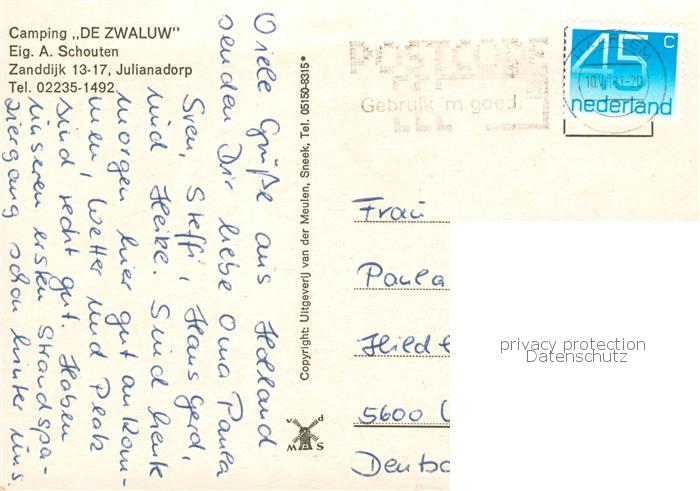 Camping „DE ZWALUW"
Eig. A. Schouten
Zanddijk 13-17, Julianadorp
Tel. 02235-1492
Viele Grüße aus Holland
senden Dir liebe Oma Paula
Sven, Steffi, Hans Gerd,
und Heike. Sind heute
morgen hier gut ankom-
men, Wetter und Platz
sind recht gut. Haben
unseren ersten Strandspa-
ziergang schon hinter uns.
Copyright: Uitgeverij van der Meulen, Sneek, Tel. 05150-8315*
v d
M S
POSTCODE
Gebruik 'm goed.
45 c
nederland
10.V
Frau
Paula
Hild
5600
Deutsc
privacy protection
Datenschutz